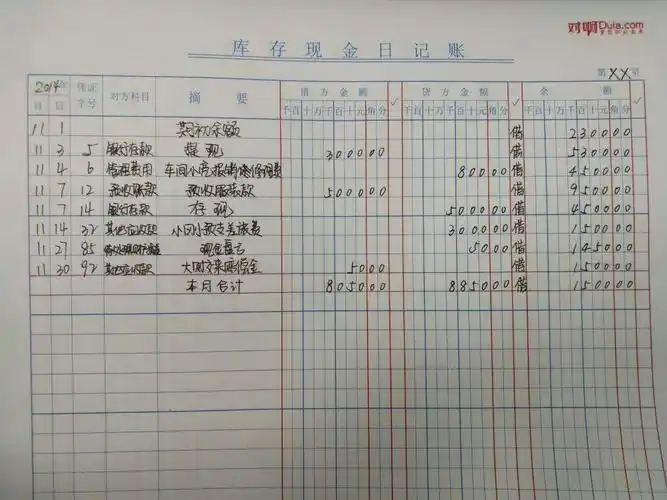 对啊Duia.com
库存现金日记账
第XX页
2014年 凭证字号 对方科目 摘要 借方金额 ✓ 贷方金额 ✓ 余额 ✓
月 日 千百十万千百十元角分 千百十万千百十元角分 千百十万千百十元角分
11 1 期初余额 借 230000
11 3 5 银行存款 提现 300000 借 530000
11 4 6 管理费用 车间小亮报销修理费 80000 借 450000
11 7 12 预收账款 预收服装款 500000 借 950000
11 7 14 银行存款 存现 500000 借 450000
11 14 32 其他应收款 小回小款支差旅费 300000 借 150000
11 27 85 现金盘亏 5000 借 145000
11 30 92 其他应收款 大明交来赔偿金 5000 借 150000
本月合计 805000 885000 借 150000